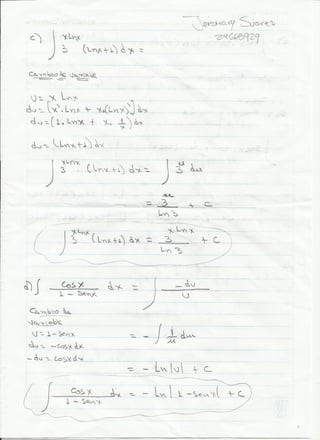 Jorsuacy Suarez
24668929
c) ∫ 3^(xLnx) (Lnx+1) dx =
Cambio de Variable
U = x Lnx
du = (x' Lnx + x(Lnx)') dx
du = (1. Lnx + x. 1/x) dx
du = (Lnx+1) dx
∫ 3^(xLnx) . (Lnx+1) dx = ∫ 3^u du
= 3^u / Ln 3 + C
∫ 3^(xLnx) (Lnx+1) dx = 3^(x.Lnx) / Ln 3 + C
d) ∫ Cosx / 1 - Senx dx = ∫ -du / U
Cambio de
Variable
U = 1 - Senx
du = -Cosx dx
-du = Cosx dx
= - ∫ 1/u du
= - Ln |U| + C
∫ Cosx / 1 - Senx dx = - Ln | 1 - Senx | + C